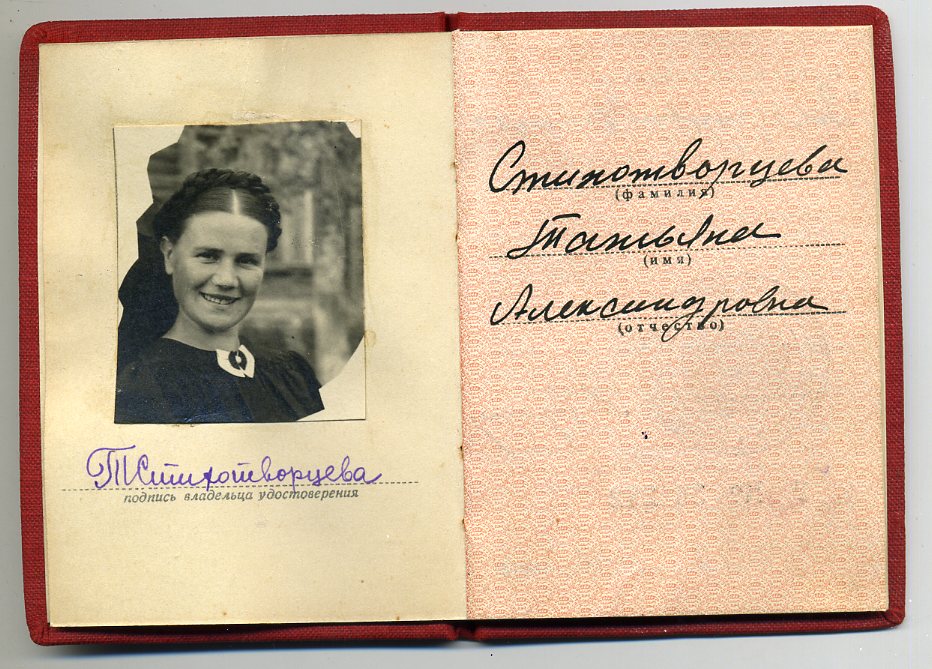 ТСтихотворцева
подпись владельца удостоверения
Стихотворцева
(фамилия)
Татьяна
(имя)
Александровна
(отчество)